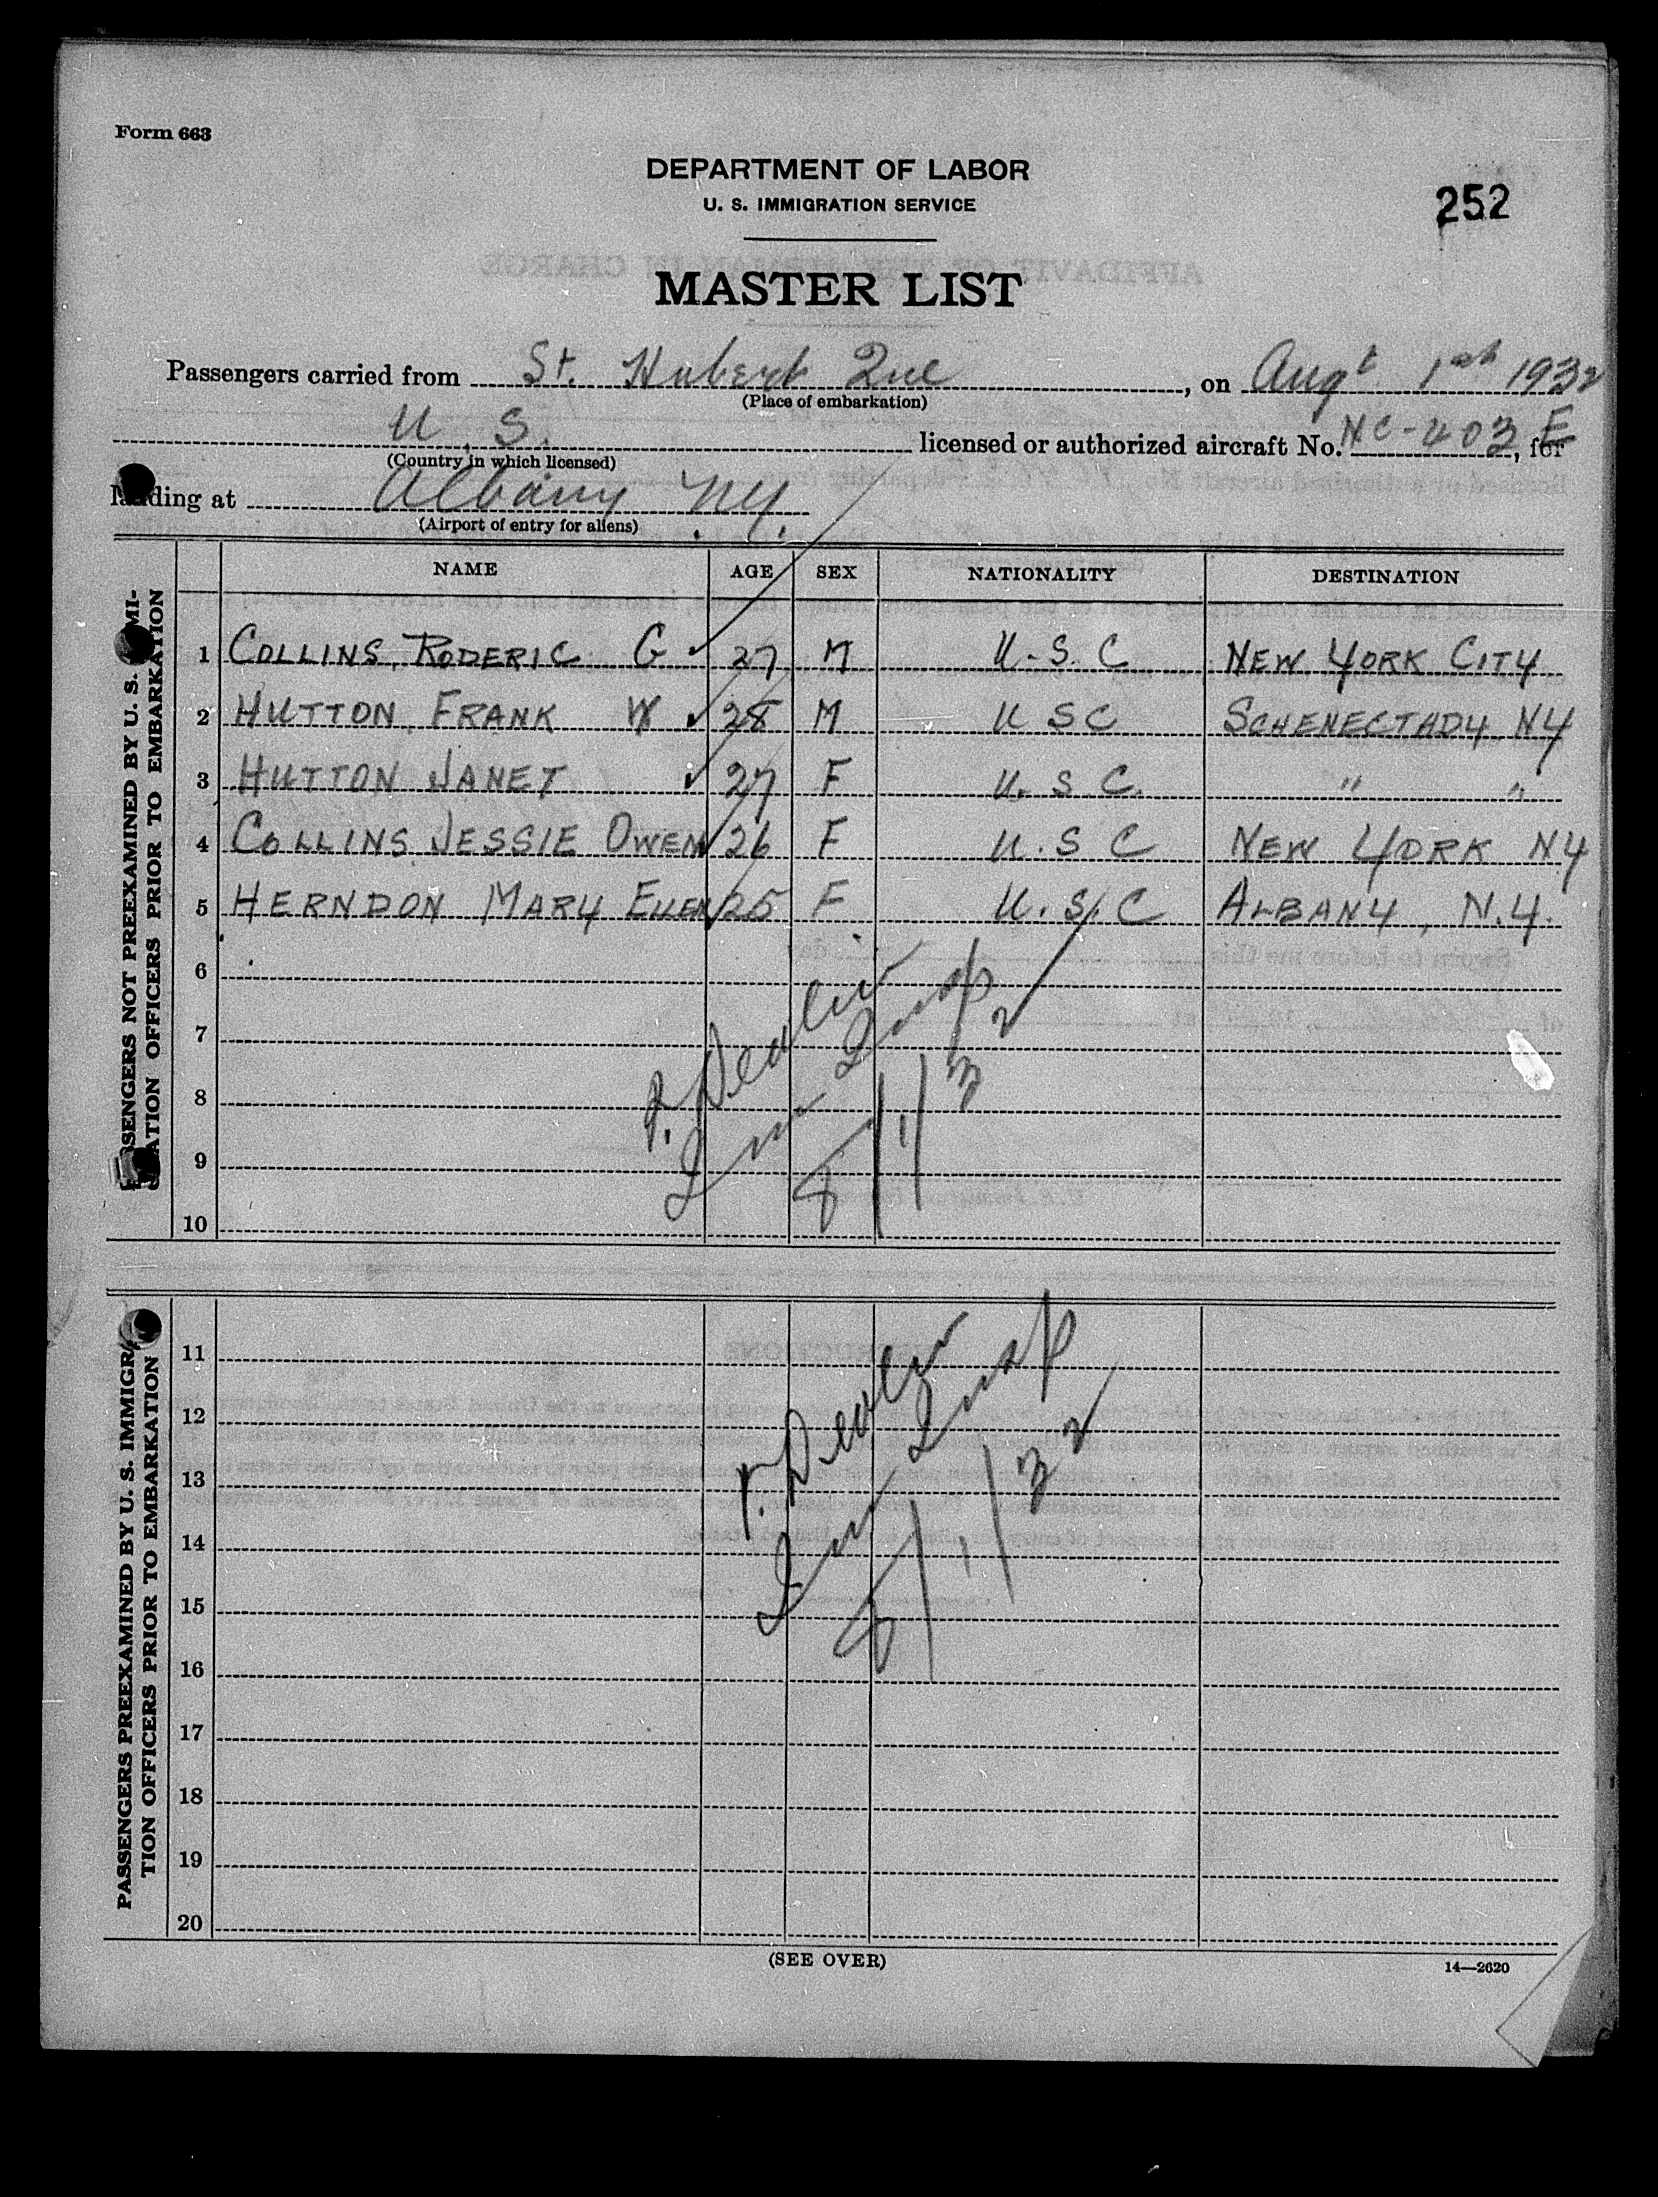 Form 663
DEPARTMENT OF LABOR
U. S. IMMIGRATION SERVICE
252
MASTER LIST
Passengers carried from St. Hubert Que, on Augt 1st 1932
(Place of embarkation)
U. S. licensed or authorized aircraft No. NC-403 E, for
(Country in which licensed)
landing at Albany N.Y.
(Airport of entry for aliens)
PASSENGERS NOT PREEXAMINED BY U. S. IMMI-
GRATION OFFICERS PRIOR TO EMBARKATION
NAME AGE SEX NATIONALITY DESTINATION
1 COLLINS, RODERIC G ✓ 27 M U.S.C NEW YORK CITY
2 HUTTON, FRANK W ✓ 28 M U S C SCHENECTADY NY
3 HUTTON JANET ✓ 27 F U.S.C. " "
4 COLLINS JESSIE OWEN ✓ 26 F U.S C NEW YORK NY
5 HERNDON MARY ELLEN ✓ 25 F U.S.C ALBANY, N.Y.
6
7
8
9
10
P. Devlin
Imm Insp
8/1/32
PASSENGERS PREEXAMINED BY U. S. IMMIGRA-
TION OFFICERS PRIOR TO EMBARKATION
11
12
13
14
15
16
17
18
19
20
P. Devlin
Imm Insp
8/1/32
(SEE OVER)
14—2620